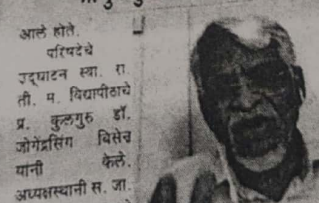 आले होते.
परिषदेचे
उद्घाटन स्वा. रा.
ती. म. विद्यापीठाचे
प्र. कुलगुरु डॉ.
जोगेंद्रसिंग विसेन
यांनी केले.
अध्यक्षस्थानी स. जा.